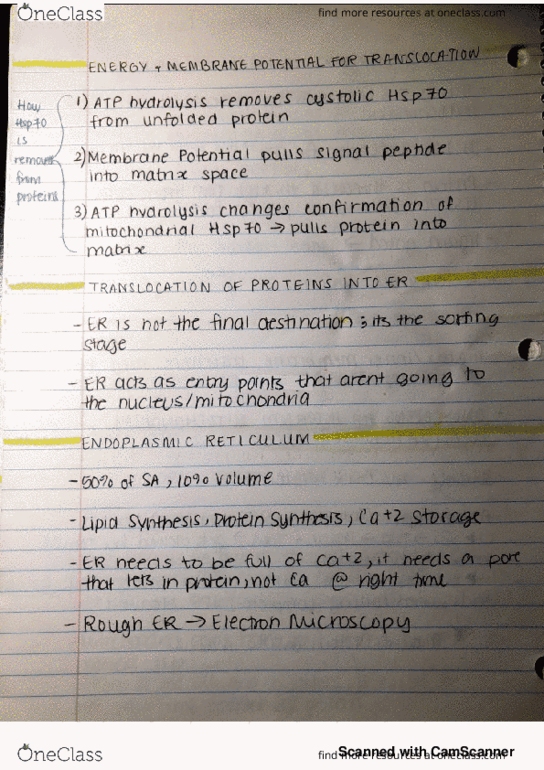 OneClass
find more resources at oneclass.com
ENERGY + MEMBRANE POTENTIAL FOR TRANSLOCATION
How
Hsp70
is
removed
from
proteins
1) ATP hydrolysis removes cystolic Hsp70
from unfolded protein
2) Membrane Potential pulls signal peptide
into matrix space
3) ATP hydrolysis changes confirmation of
mitochondrial Hsp70 → pulls protein into
matrix
TRANSLOCATION OF PROTEINS INTO ER
- ER is not the final destination ; its the sorting
stage
- ER acts as entry points that arent going to
the nucleus/mitochondria
ENDOPLASMIC RETICULUM
- 50% of SA, 10% volume
- Lipid Synthesis, Protein Synthesis, Ca+2 Storage
- ER needs to be full of Ca+2, it needs a pore
that lets in protein, not Ca @ right time
- Rough ER → Electron Microscopy
OneClass
find more resources at oneclass.com
Scanned with CamScanner